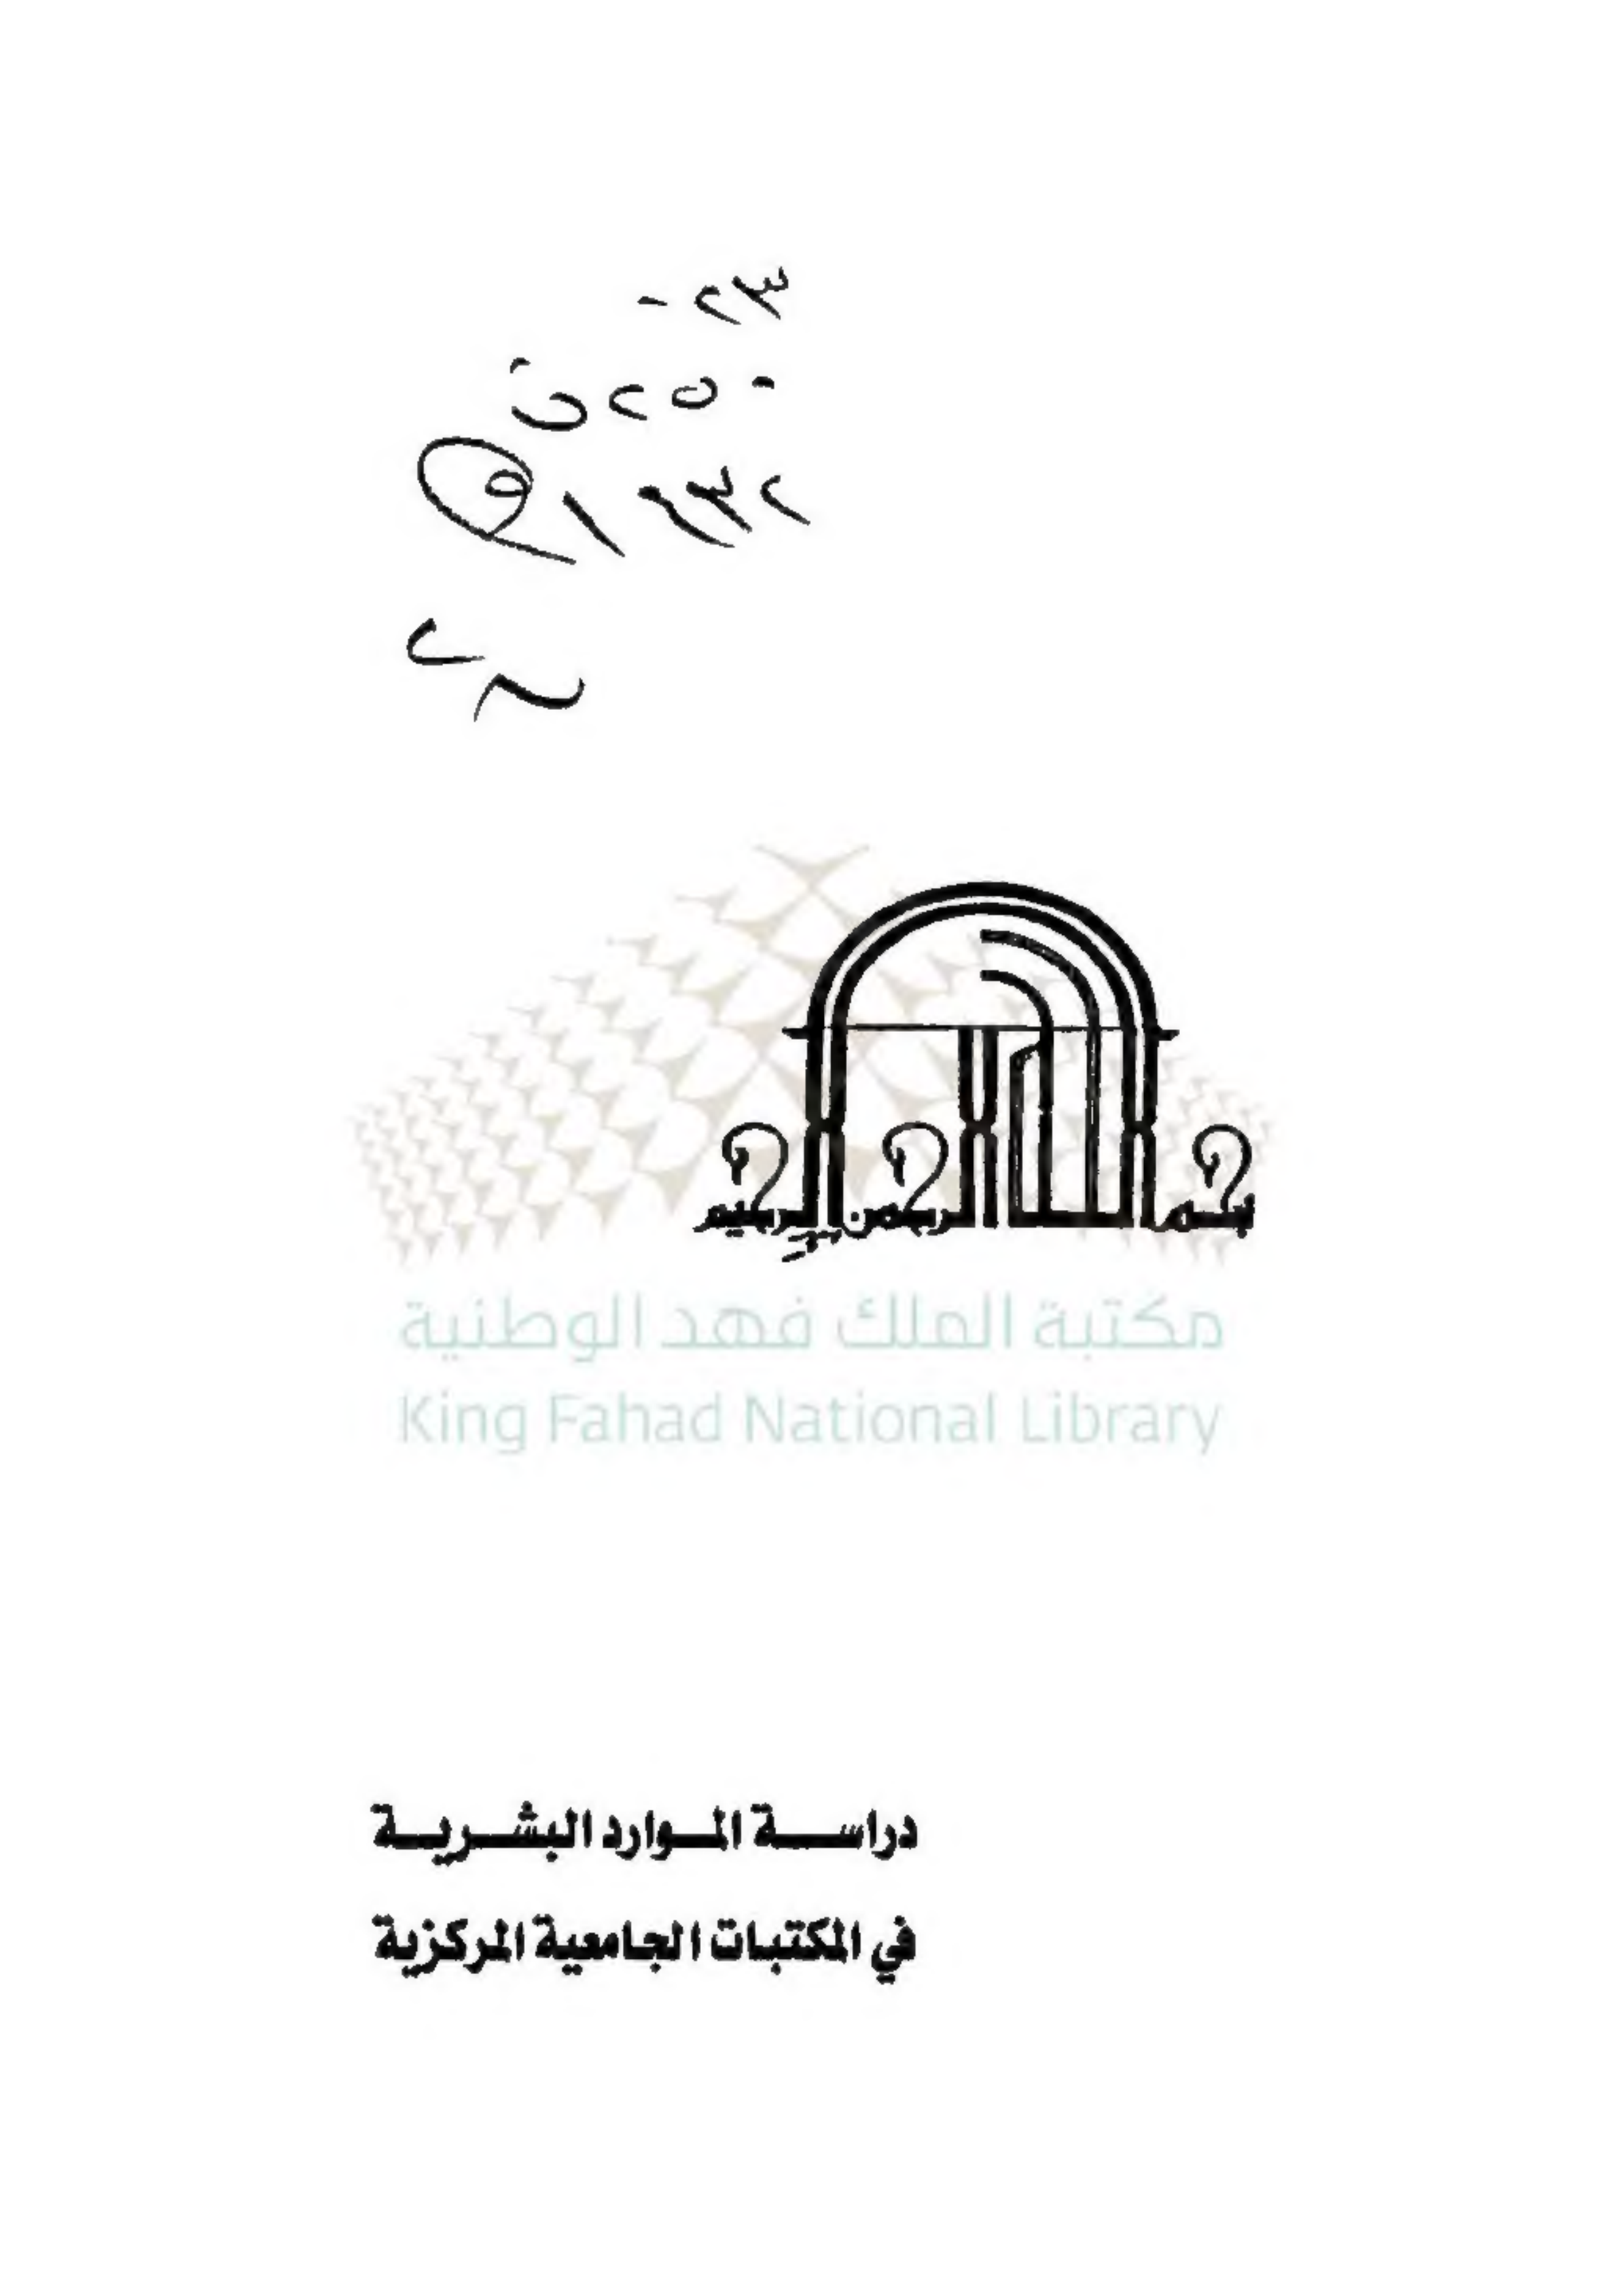 بسم الله الرحمن الرحيم
مكتبة الملك فهد الوطنية
King Fahad National Library
دراسة الموارد البشرية
في المكتبات الجامعية المركزية